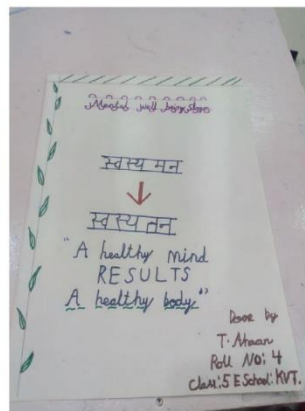 Mental well being
स्वस्थ मन
स्वस्थ तन
"A healthy mind
RESULTS
A healthy body"
Done by
T. Ahaan
Roll NO: 4
Class: 5 E School: KVT.